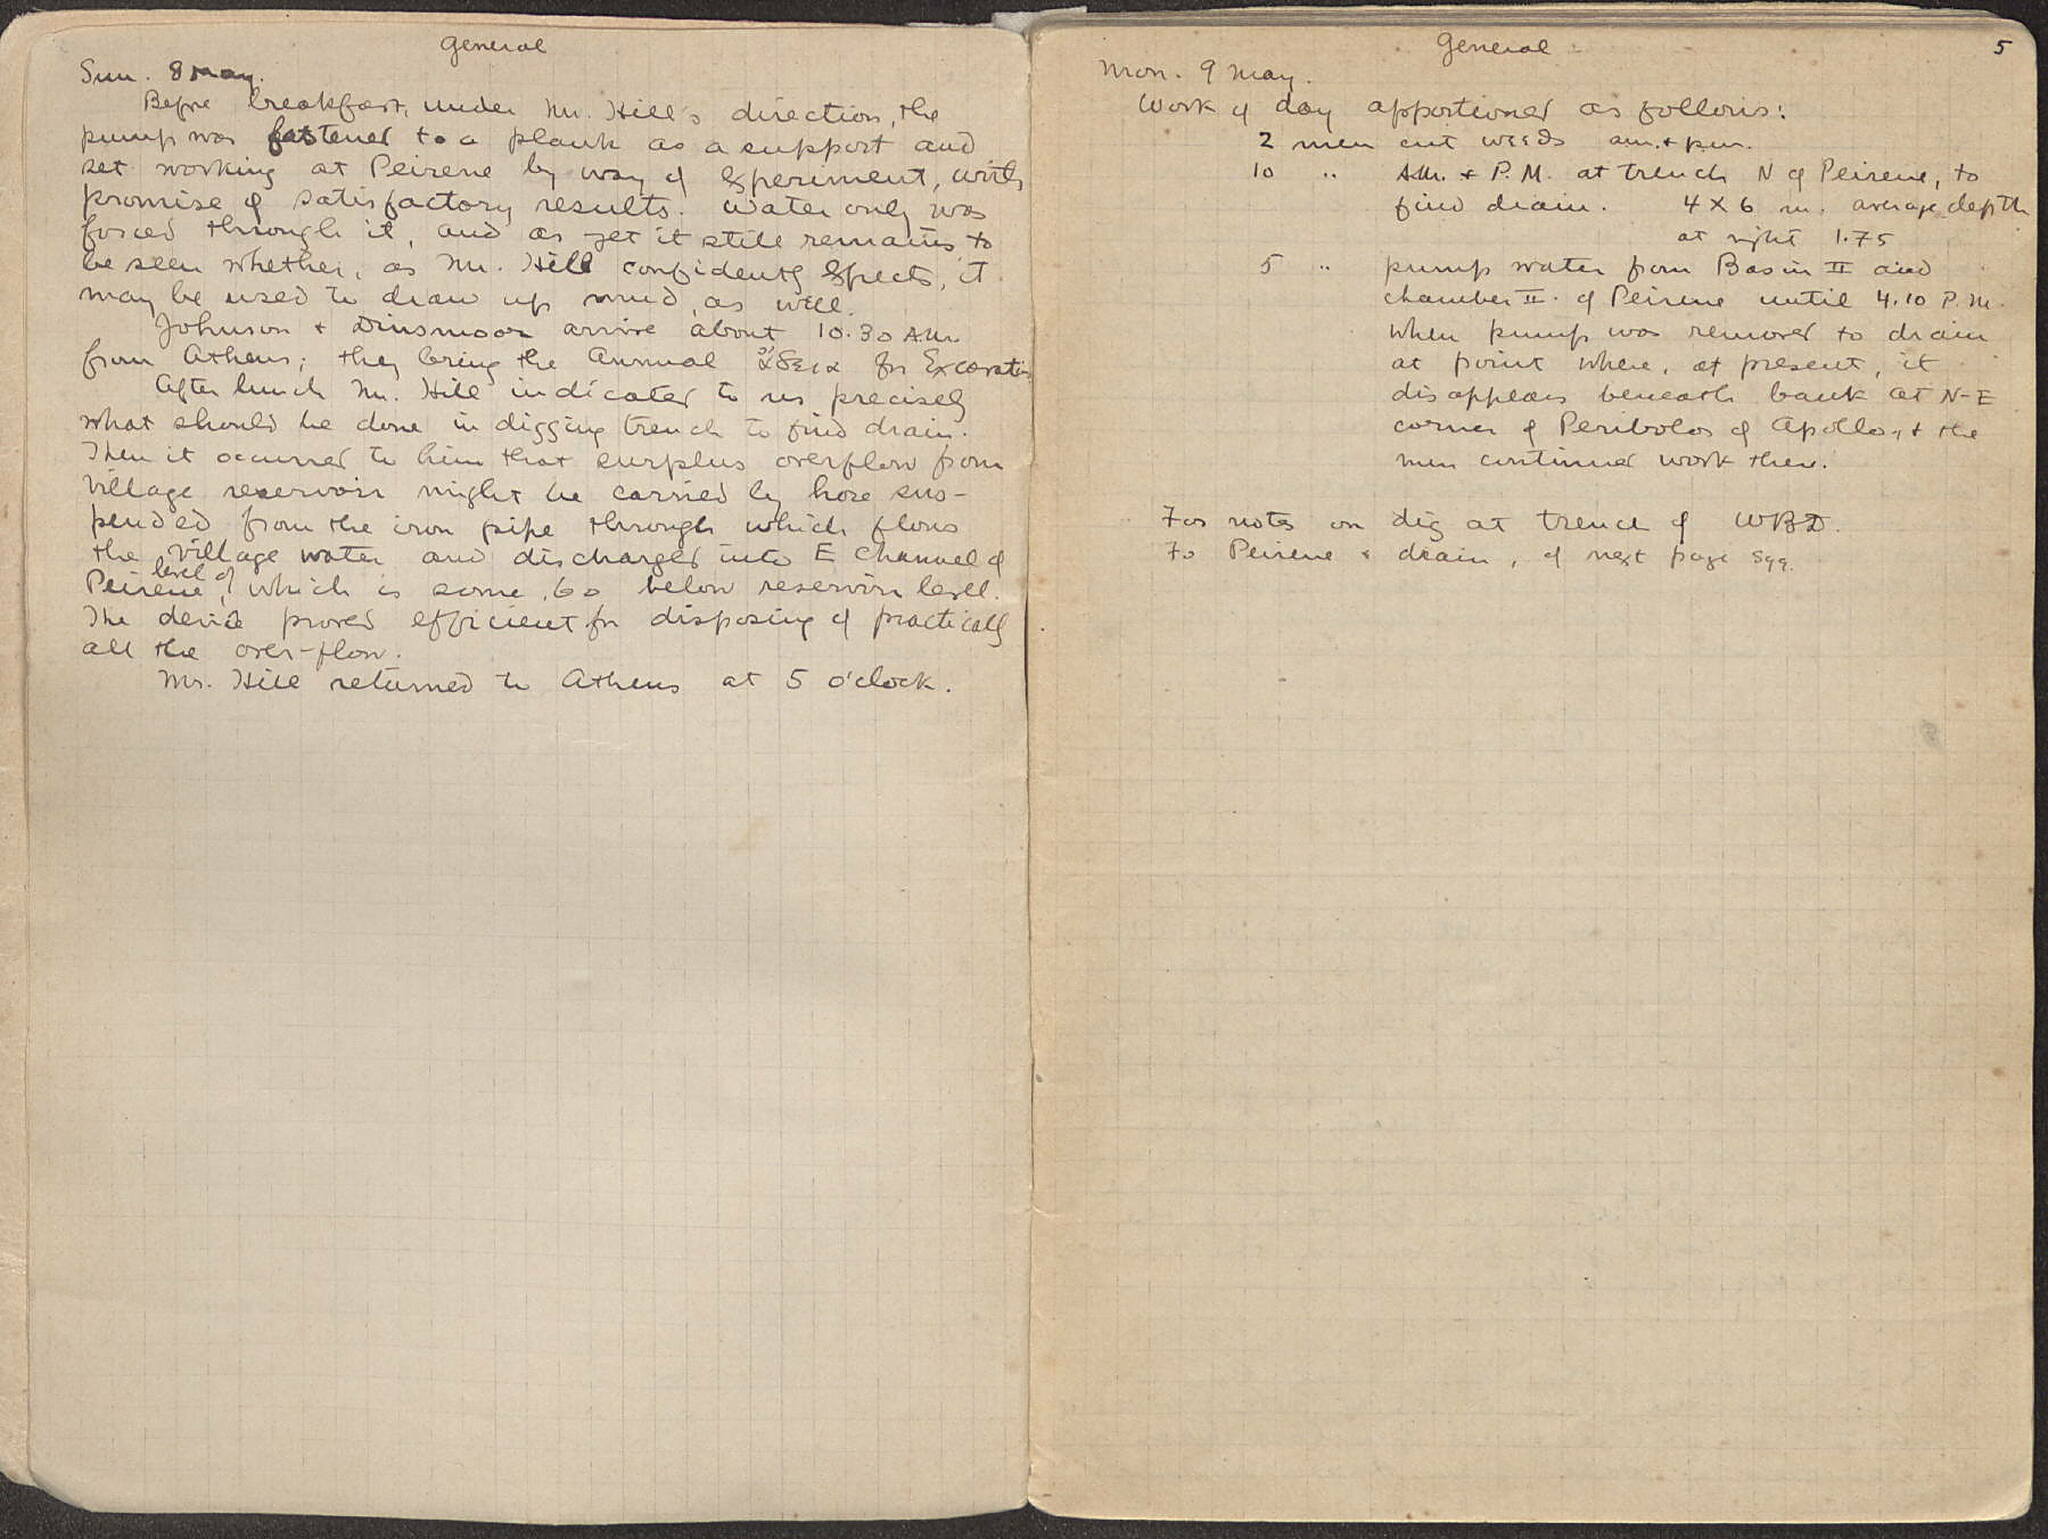 General
Sun. 8 May.
Before breakfast, under Mr. Hill's direction, the
pump was fastened to a plank as a support and
set working at Peirene by way of experiment, with
promise of satisfactory results. Water only was
forced through it, and as yet it still remains to
be seen whether, as Mr. Hill confidently expects, it
may be used to draw up mud, as well.
Johnson + Dinsmoor arrive about 10.30 A.M.
from Athens; they bring the Annual ἄδεια for Excavation
After lunch Mr. Hill indicated to us precisely
what should be done in digging trench to find drain.
Then it occurred to him that surplus overflow from
village reservoir might be carried by hose sus-
pended from the iron pipe through which flows
the village water and discharged into E channel of
Peirene, level of which is some .60 below reservoir level.
The device proved efficient for disposing of practically
all the over-flow.
Mr. Hill returned to Athens at 5 o'clock.
General
5
Mon. 9 May.
Work of day apportioned as follows:
2 men cut weeds am. + pm.
10 " A.M. + P.M. at trench N of Peirene, to
find drain. 4 X 6 m. average depth
at right 1.75
5 " pump water from Basin II and
chamber II of Peirene until 4.10 P.M.
when pump was removed to drain
at point where, at present, it
disappears beneath bank at N-E
corner of Peribolos of Apollo, + the
men continued work there.
For notes on dig at trench cf WBD.
Fo Peirene + drain, cf next page sqq.